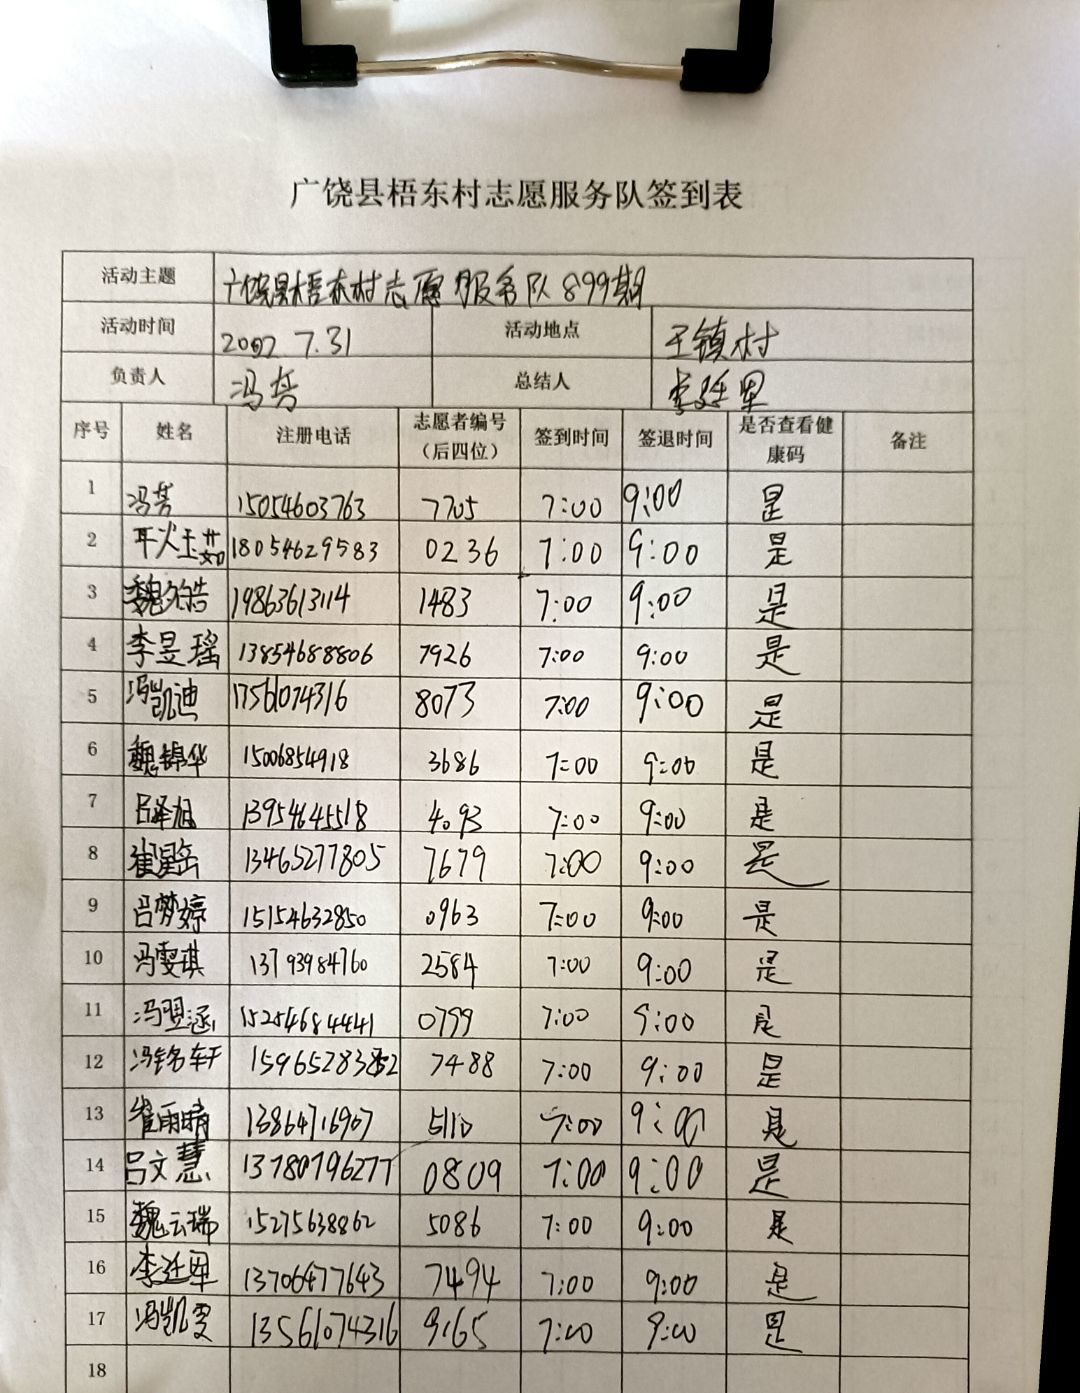 广饶县梧东村志愿服务队签到表
活动主题 广饶县梧东村志愿服务队899期
活动时间 7.31 活动地点 王镇村
负责人 冯芳 总结人 李廷军
序号 姓名 注册电话 志愿者编号（后四位） 签到时间 签退时间 是否查看健康码 备注
1 冯芳 15054603763 7705 7:00 9:00 是
2 耿玉茹 18054629583 0236 7:00 9:00 是
3 19863613114 1483 7:00 9:00 是
4 李昱瑶 13854688806 7926 7:00 9:00 是
5 冯凯迪 13561074316 8073 7:00 9:00 是
6 魏锦华 15006854918 3686 7:00 9:00 是
7 吕泽旭 13954645518 4093 7:00 9:00 是
8 13465277805 7679 7:00 9:00 是
9 吕梦婷 15154632850 0963 7:00 9:00 是
10 冯雯琪 13793984760 2584 7:00 9:00 是
11 冯翌涵 15254684441 0799 7:00 9:00 是
12 冯铭轩 7488 7:00 9:00 是
13 崔雨晴 13864716907 5110 7:00 9:00 是
14 吕文慧 13780796277 0809 7:00 9:00 是
15 魏云瑞 15275638862 5086 7:00 9:00 是
16 李廷军 13706477643 7494 7:00 9:00 是
17 冯凯雯 13561074316 9165 7:00 9:00 是
18